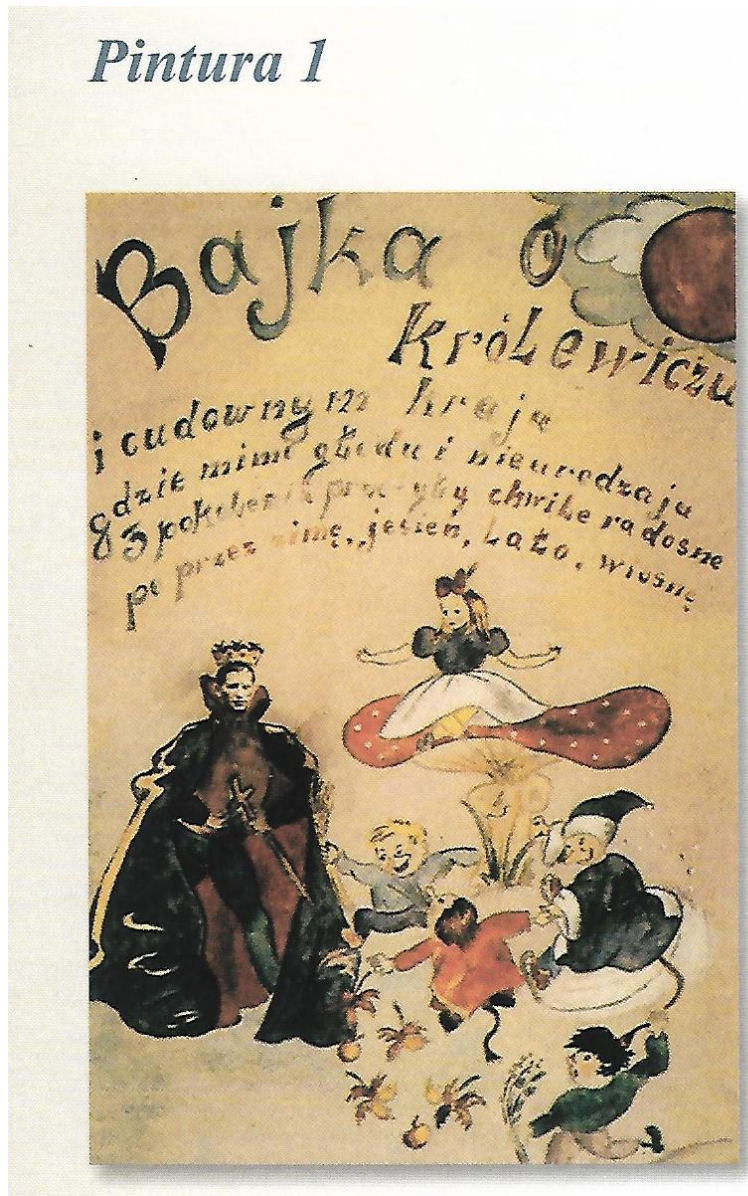 Pintura 1
Bajka o
królewiczu
i cudownym kraju
gdzie mimo głodu i nieurodzaju
3 pokolenia przeżyły chwile radosne
po przez zimę, jesień, lato, wiosnę